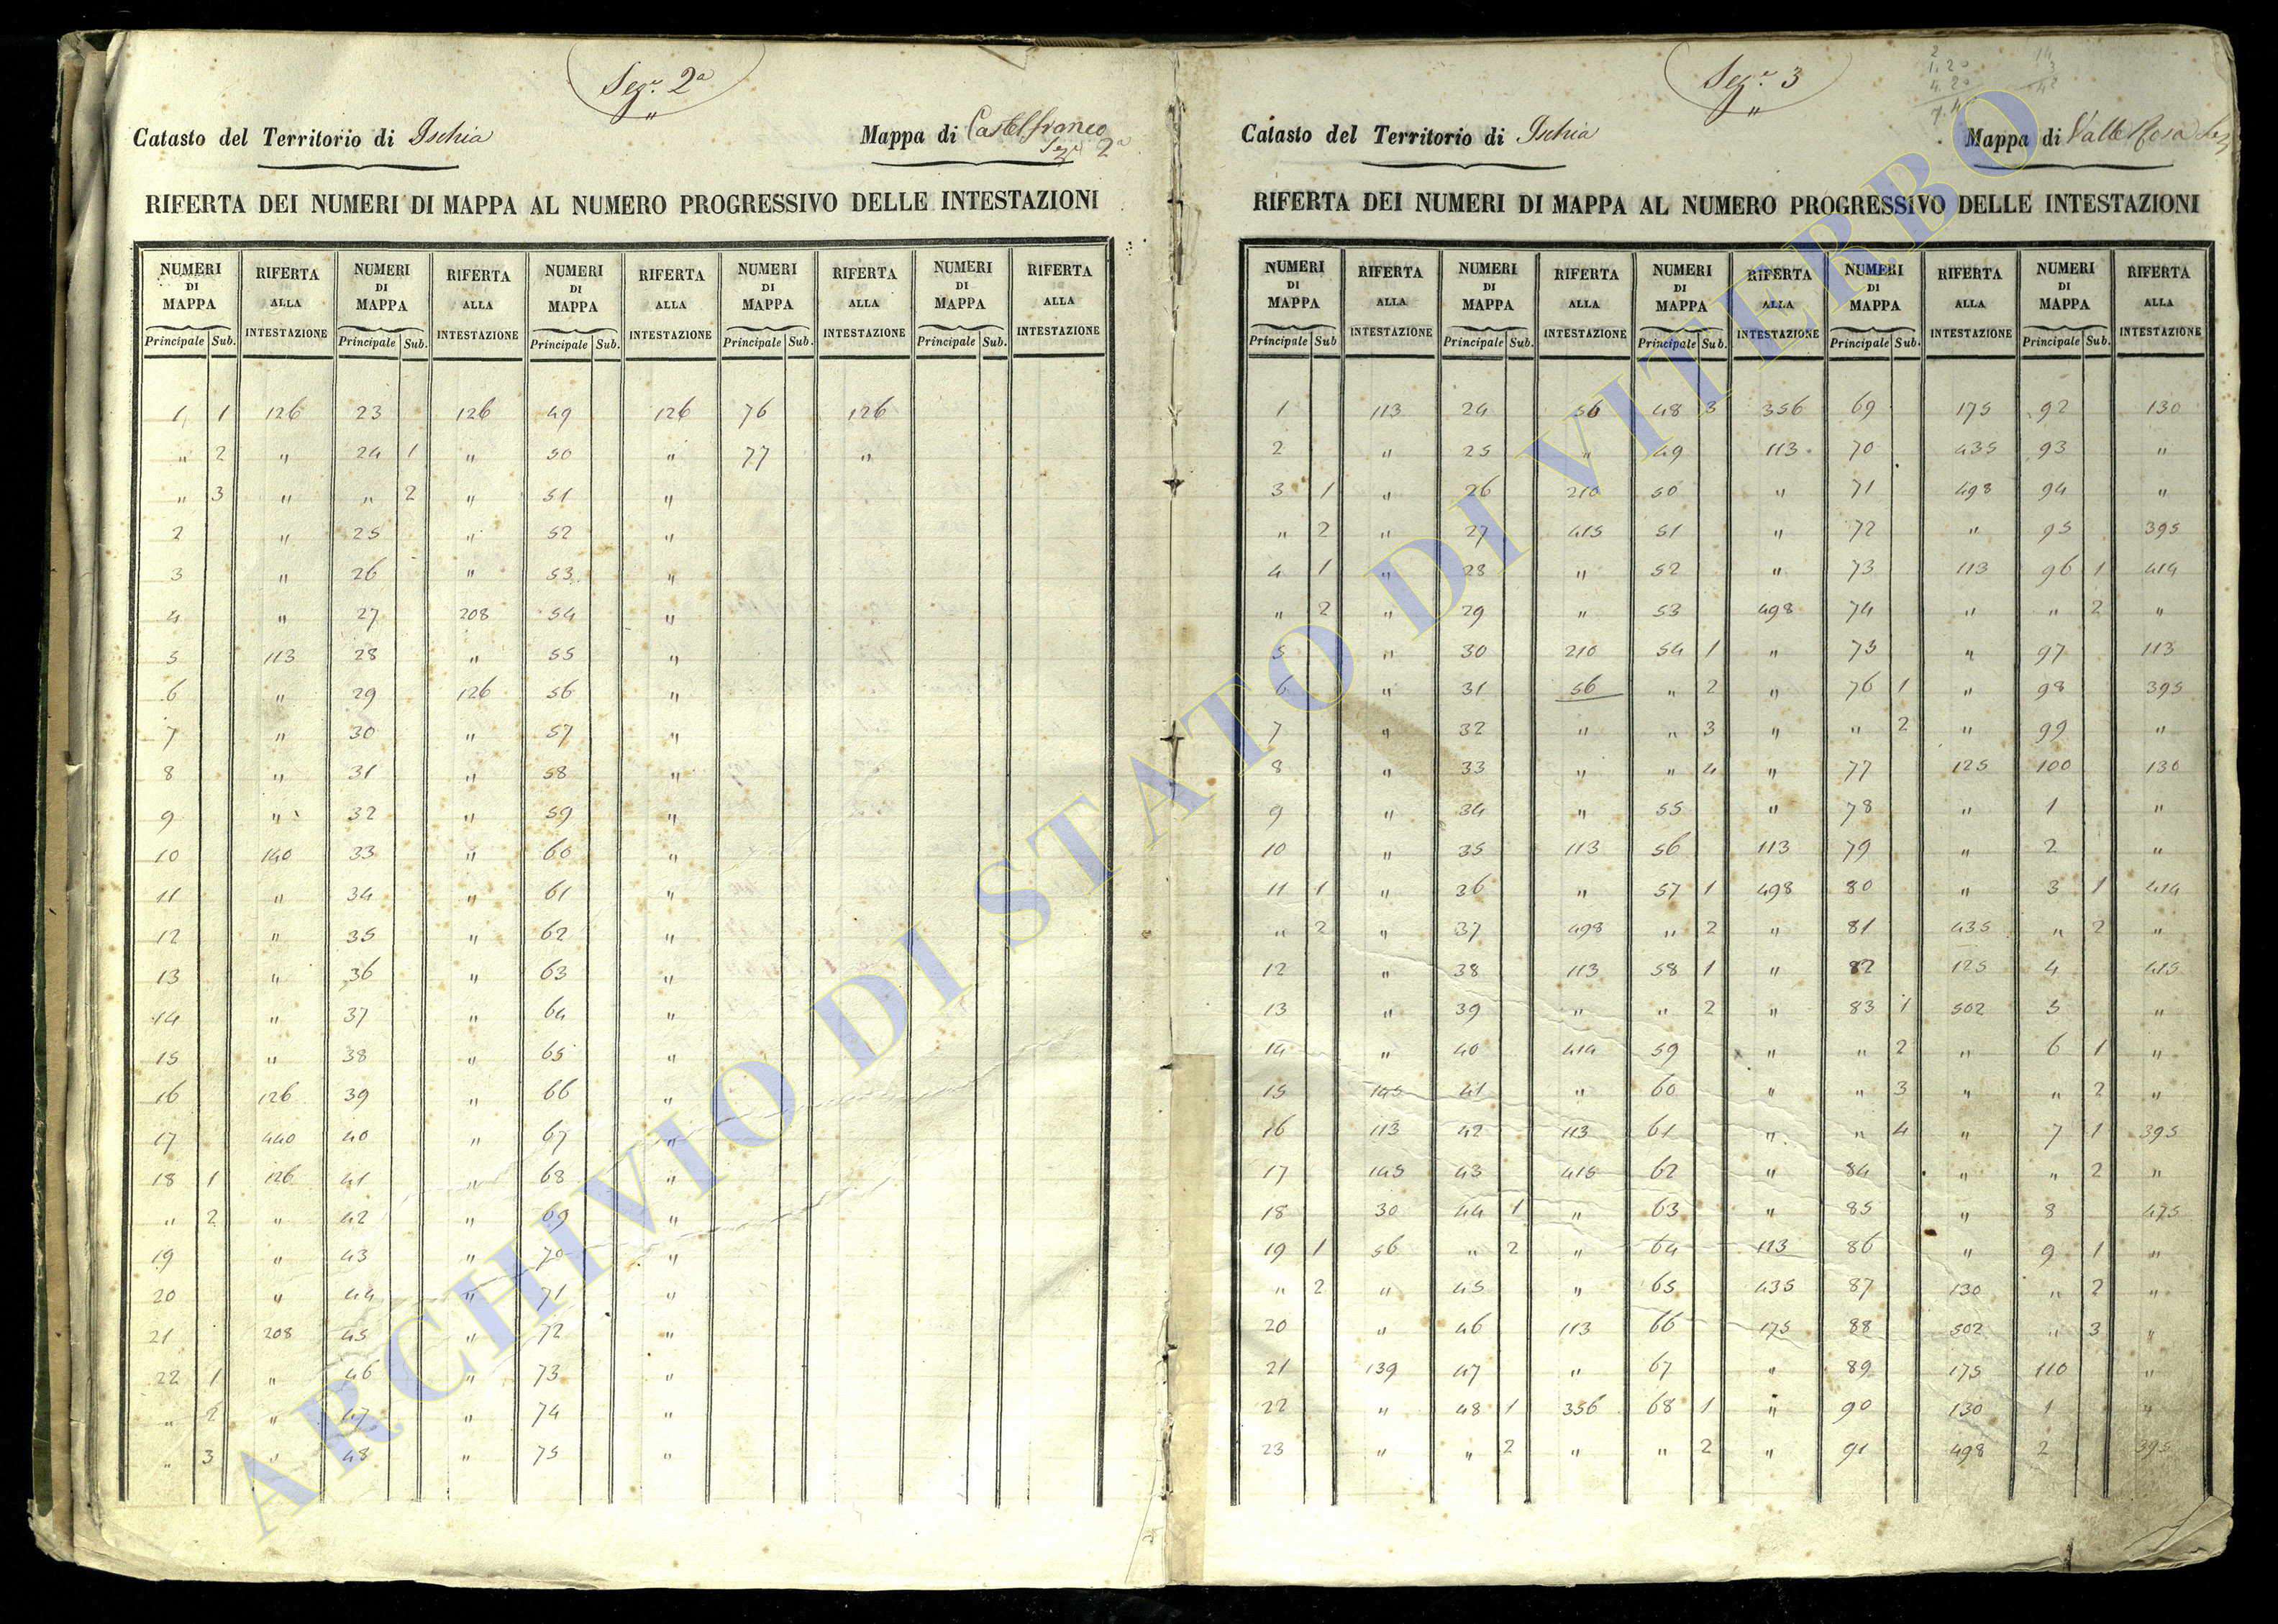 Sezᵉ. 2ª
"
Catasto del Territorio di Ischia
Mappa di Castelfranco
Sezᵉ 2ª
RIFERTA DEI NUMERI DI MAPPA AL NUMERO PROGRESSIVO DELLE INTESTAZIONI
NUMERI DI MAPPA RIFERTA ALLA INTESTAZIONE NUMERI DI MAPPA RIFERTA ALLA INTESTAZIONE NUMERI DI MAPPA RIFERTA ALLA INTESTAZIONE NUMERI DI MAPPA RIFERTA ALLA INTESTAZIONE NUMERI DI MAPPA RIFERTA ALLA INTESTAZIONE
Principale Sub. Principale Sub. Principale Sub. Principale Sub. Principale Sub.
1 1 126 23 126 49 126 76 126
" 2 " 24 1 " 50 " 77 "
" 3 " " 2 " 51 "
2 " 25 " 52 "
3 " 26 " 53 "
4 " 27 208 54 "
5 113 28 " 55 "
6 " 29 126 56 "
7 " 30 " 57 "
8 " 31 " 58 "
9 " 32 " 59 "
10 140 33 " 60 "
11 " 34 " 61 "
12 " 35 " 62 "
13 " 36 " 63 "
14 " 37 " 64 "
15 " 38 " 65 "
16 126 39 " 66 "
17 440 40 " 67 "
18 1 126 41 " 68 "
" 2 " 42 " 69 "
19 " 43 " 70 "
20 " 44 " 71 "
21 208 45 " 72 "
22 1 " 46 " 73 "
" 2 " 47 " 74 "
" 3 " 48 " 75 "
Sezᵉ. 3
"
Catasto del Territorio di Ischia
Mappa di Valle Rosa
RIFERTA DEI NUMERI DI MAPPA AL NUMERO PROGRESSIVO DELLE INTESTAZIONI
NUMERI DI MAPPA RIFERTA ALLA INTESTAZIONE NUMERI DI MAPPA RIFERTA ALLA INTESTAZIONE NUMERI DI MAPPA RIFERTA ALLA INTESTAZIONE NUMERI DI MAPPA RIFERTA ALLA INTESTAZIONE NUMERI DI MAPPA RIFERTA ALLA INTESTAZIONE
Principale Sub Principale Sub. Principale Sub. Principale Sub. Principale Sub.
1 113 24 56 48 3 356 69 175 92 130
2 " 25 " 49 113 70 435 93 "
3 1 " 26 210 50 " 71 498 94 "
" 2 " 27 415 51 " 72 " 95 395
4 1 " 28 " 52 " 73 113 96 1 414
" 2 " 29 " 53 498 74 " " 2 "
5 " 30 210 54 1 " 75 " 97 113
6 " 31 56 " 2 " 76 1 " 98 395
7 " 32 " " 3 " " 2 " 99 "
8 " 33 " " 4 " 77 125 100 130
9 " 34 " 55 " 78 " 1 "
10 " 35 113 56 113 79 " 2 "
11 1 " 36 " 57 1 498 80 " 3 1 414
" 2 " 37 498 " 2 " 81 435 " 2 "
12 " 38 113 58 1 " 82 125 4 415
13 " 39 " " 2 " 83 1 502 5 "
14 " 40 414 59 " " 2 " 6 1 "
15 145 41 " 60 " " 3 " " 2 "
16 113 42 113 61 " " 4 " 7 1 395
17 145 43 415 62 " 84 " " 2 "
18 30 44 1 " 63 " 85 " 8 475
19 1 56 " 2 " 64 113 86 " 9 1 "
" 2 " 45 " 65 435 87 130 " 2 "
20 " 46 113 66 175 88 502 " 3 "
21 139 47 " 67 " 89 175 110 "
22 " 48 1 356 68 1 " 90 130 1 "
23 " " 2 " " 2 " 91 498 2 395
ARCHIVIO DI STATO DI VITERBO